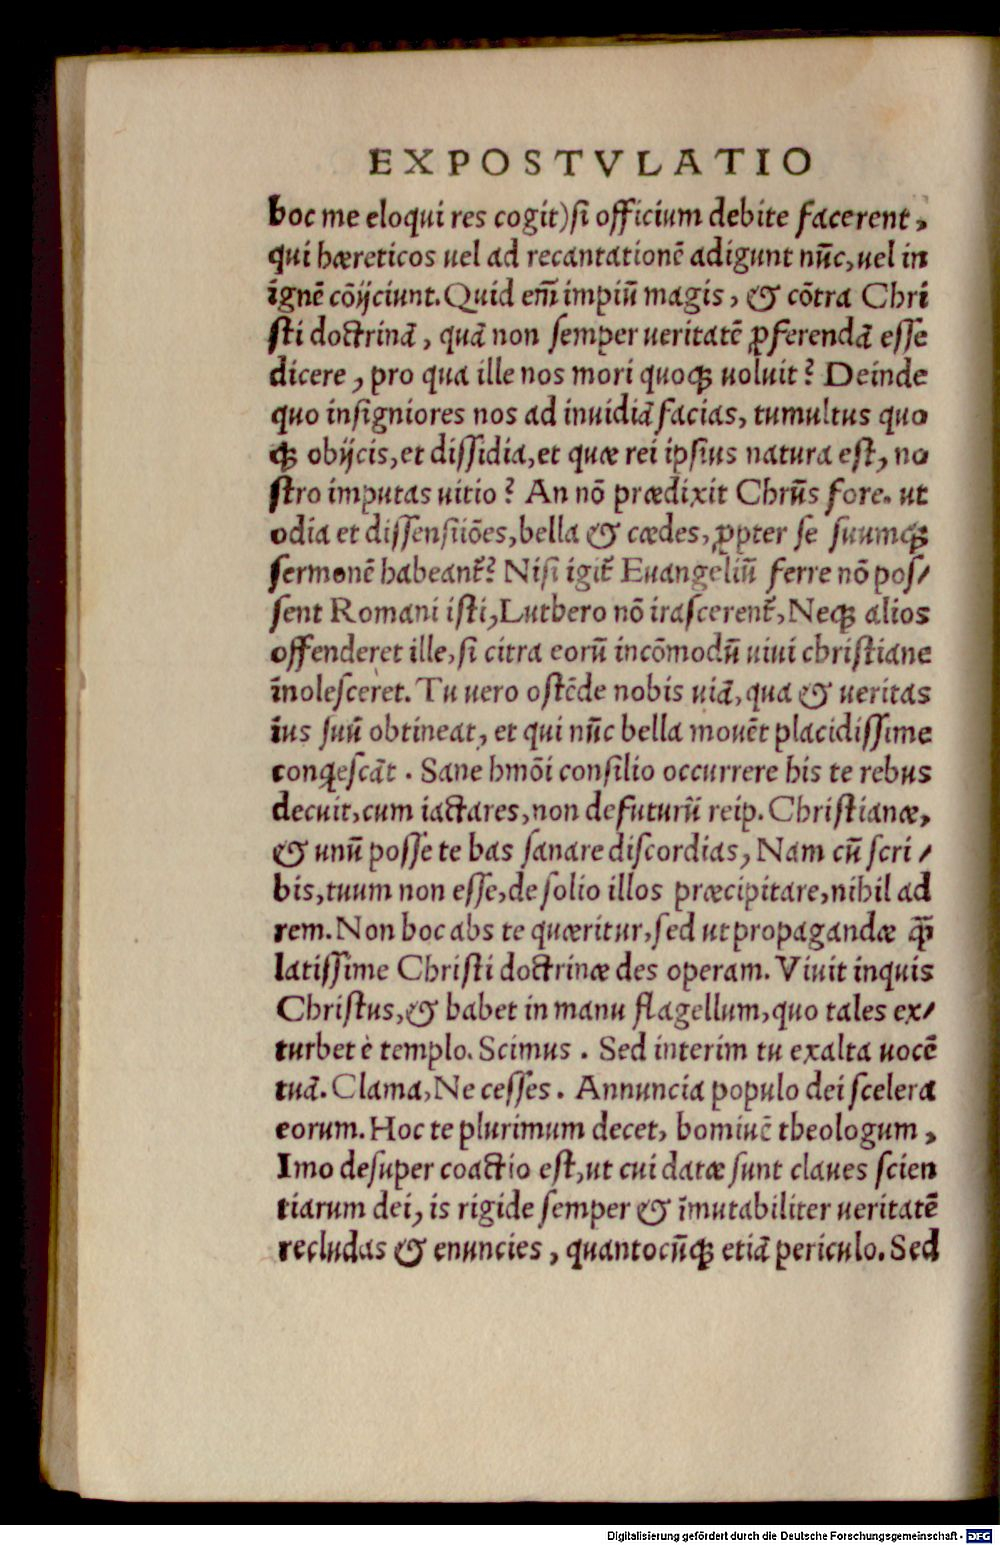 EXPOSTVLATIO
hoc me eloqui res cogit) si officium debite facerent,
qui hæreticos uel ad recantationē adigunt nūc, uel in
ignē cōijciunt. Quid em̄ impiū magis, & cōtra Chri
sti doctrinā, quā non semper ueritatē ꝓferendā esse
dicere, pro qua ille nos mori quoqꝫ uoluit? Deinde
quo insigniores nos ad inuidiā facias, tumultus quo
qꝫ obijcis, et dissidia, et quæ rei ipsius natura est, no
stro imputas uitio? An nō prædixit Chrūs fore. ut
odia et dissensiiōes, bella & cædes, ꝓpter se suumqꝫ
sermonē habeant᷑? Nisi igit᷑ Euangeliū ferre nō pos/
sent Romani isti, Luthero nō irascerent᷑, Neqꝫ alios
offenderet ille, si citra eorū incōmodū uiui christiane
īnolesceret. Tu uero ostēde nobis uiā, qua & ueritas
ius suū obtineat, et qui nūc bella mouēt placidissime
conq̄escāt. Sane hmōi consilio occurrere his te rebus
decuit, cum iactares, non defuturū reip. Christianæ,
& unū posse te has sanare discordias, Nam cū scri/
bis, tuum non esse, de solio illos præcipitare, nihil ad
rem. Non hoc abs te quæritur, sed ut propagandæ qꝫ̄
latissime Christi doctrinæ des operam. Viuit inquis
Christus, & habet in manu flagellum, quo tales ex/
turbet è templo. Scimus. Sed interim tu exalta uocē
tuā. Clama, Ne cesses. Annuncia populo dei scelera
eorum. Hoc te plurimum decet, homiuē theologum,
Imo desuper coactio est, ut cui datæ sunt claues scien
tiarum dei, is rigide semper & īmutabiliter ueritatē
recludas & enuncies, quantocūqꝫ etiā periculo. Sed
Digitalisierung gefördert durch die Deutsche Forschungsgemeinschaft - DFG